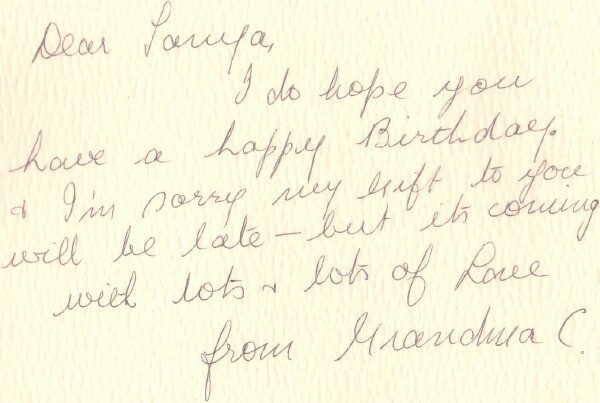 Dear Tanya,
I do hope you
have a happy Birthday.
& I'm sorry my gift to you
will be late - but its coming
with lots & lots of Love
from Grandma C.